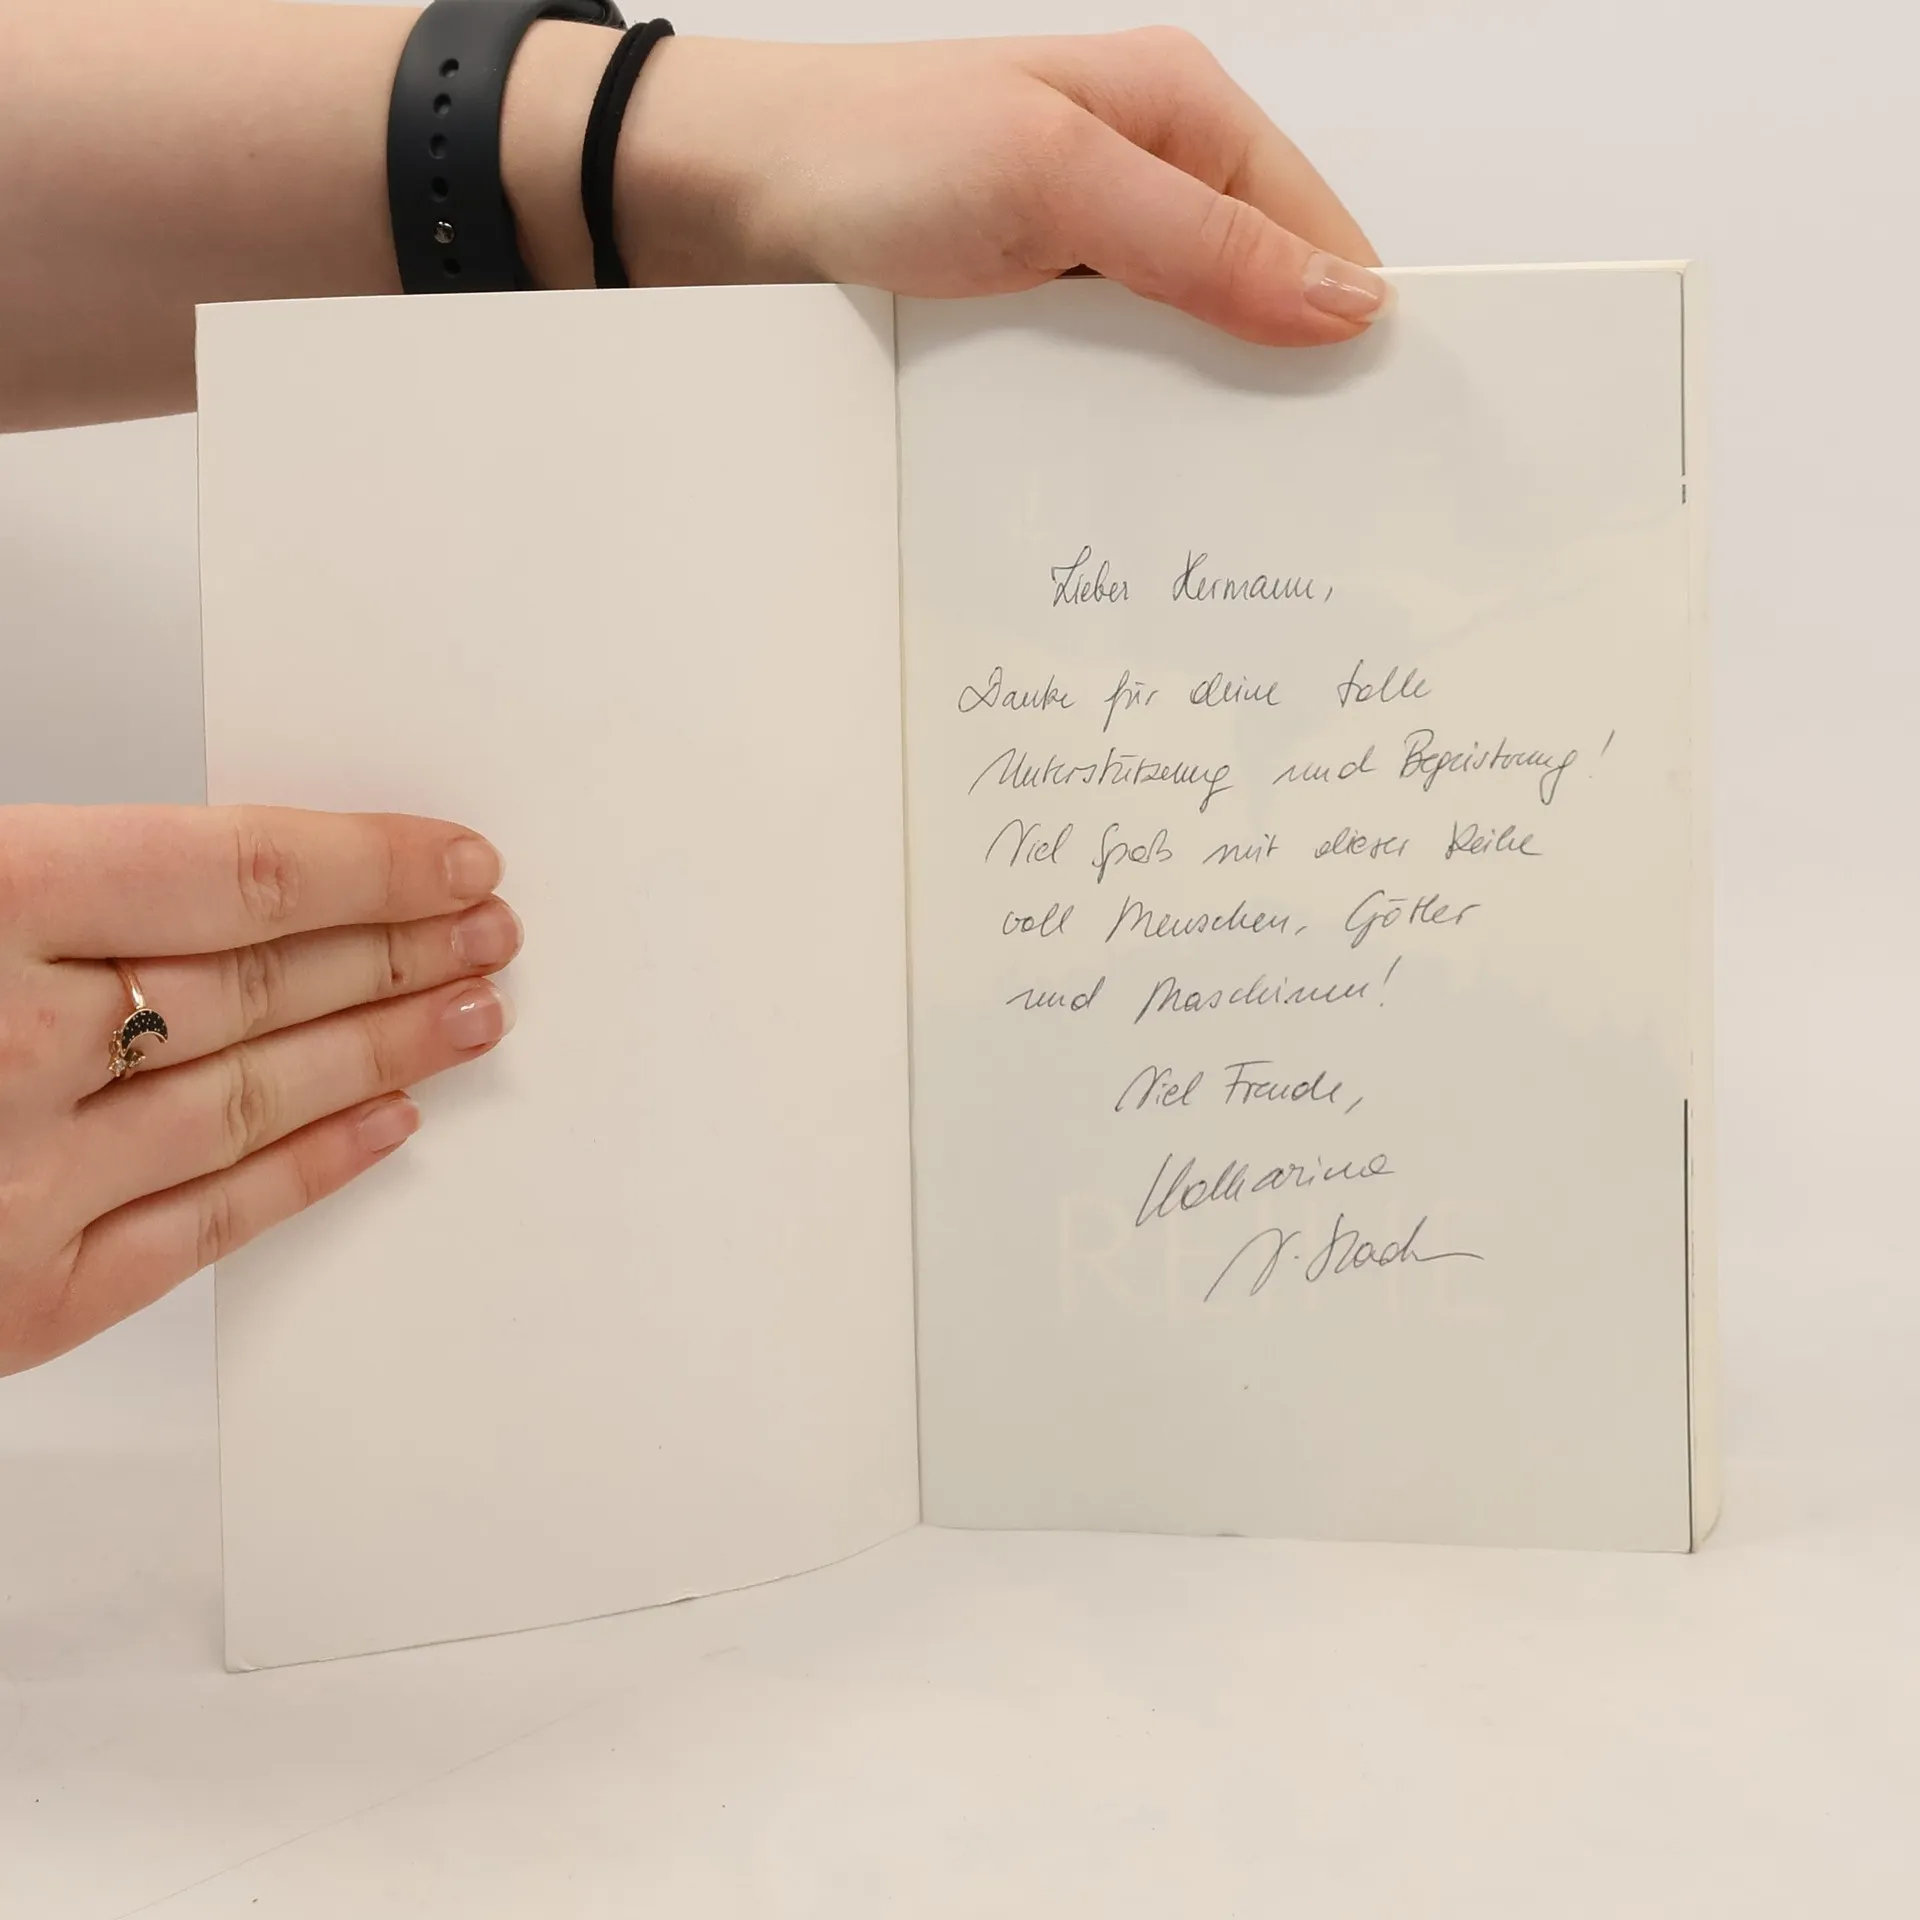 Lieber Hermann,
Danke für deine tolle
Unterstützung und Begeisterung!
Viel Spaß mit dieser Reihe
voll Menschen, Götter
und Maschinen!
Viel Freude,
Katharina
V.
REIHE